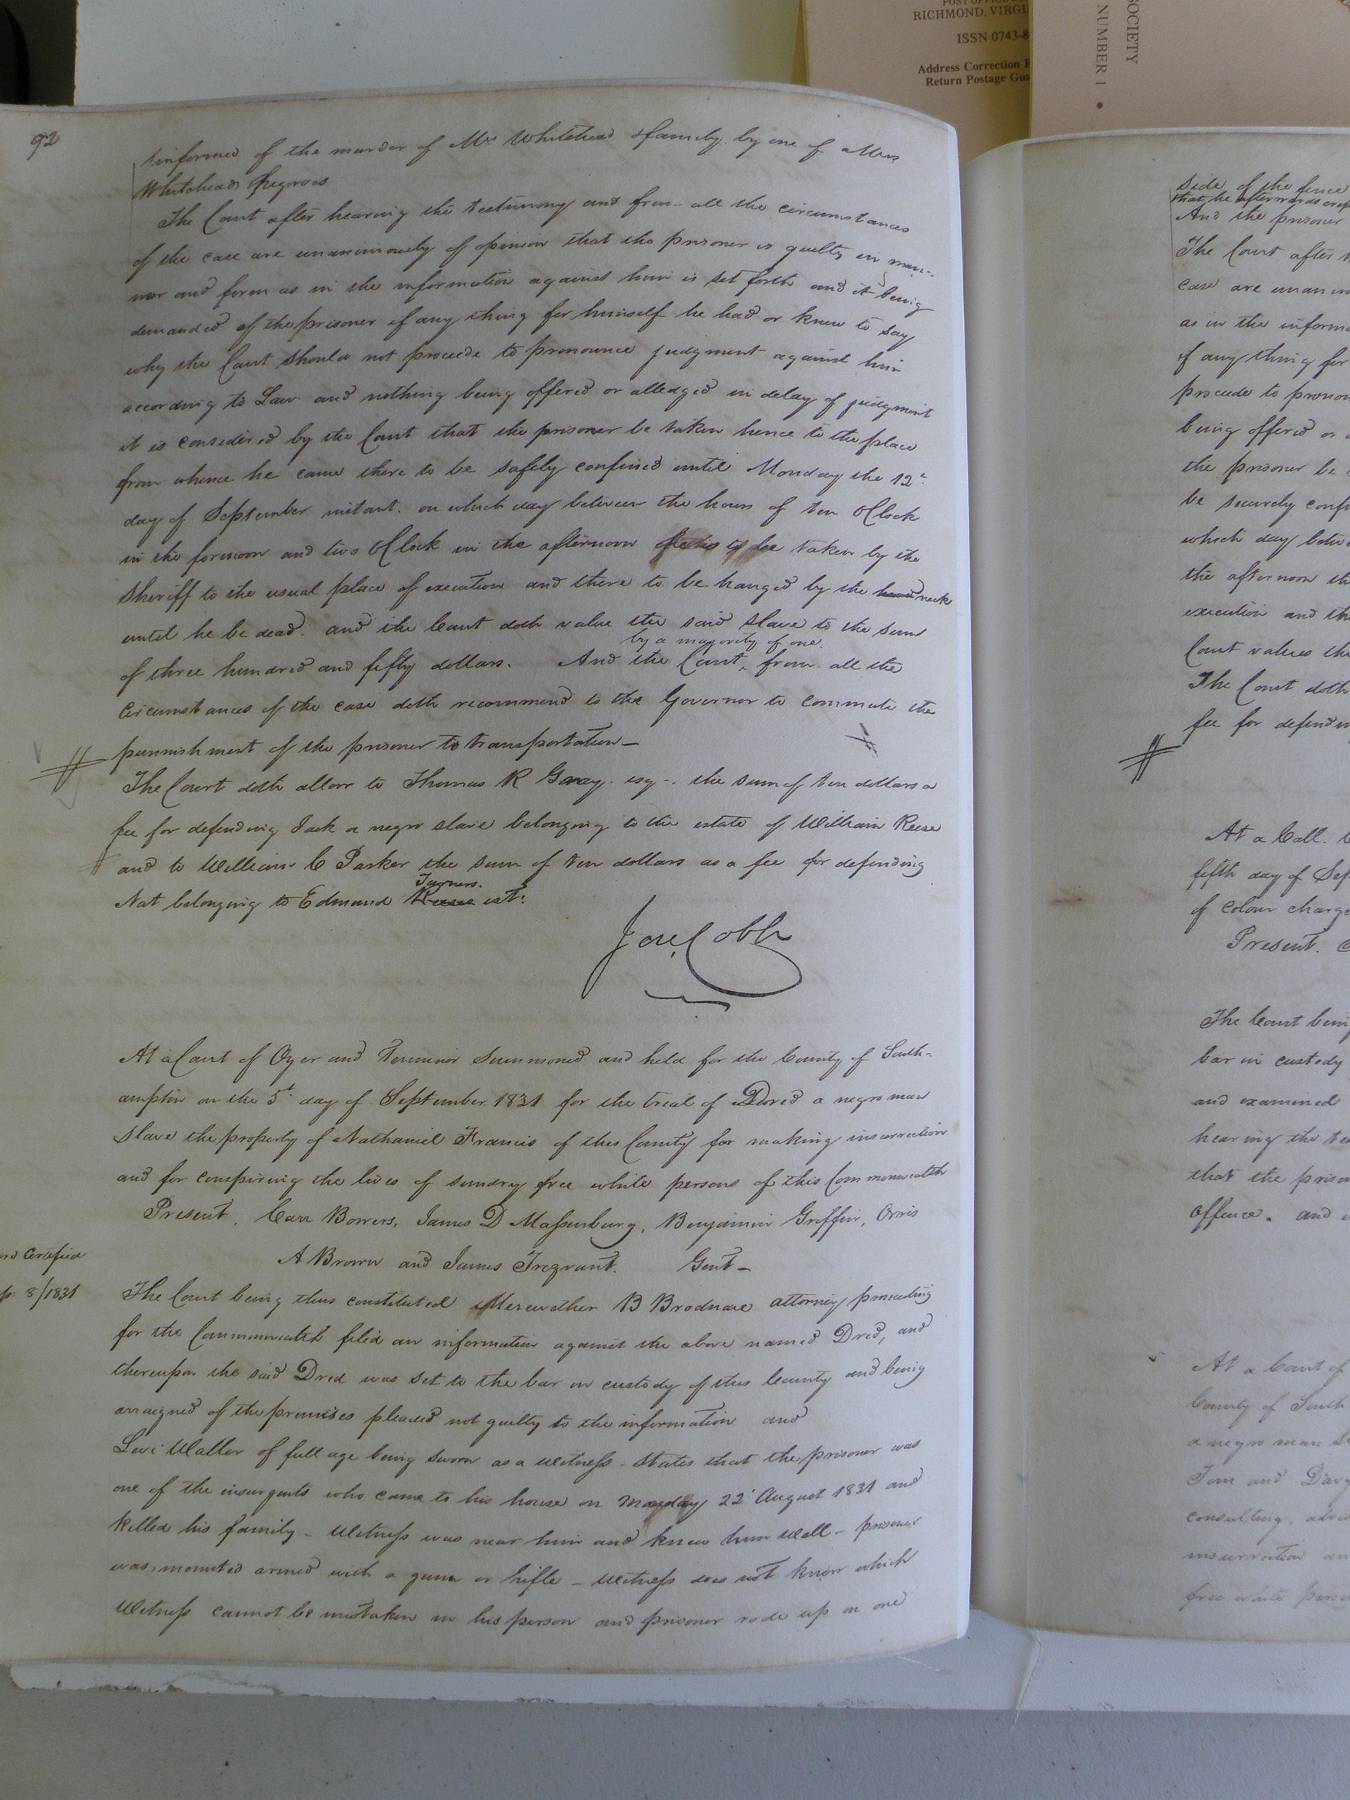 POST OFFICE
RICHMOND, VIRGI
ISSN 0743-8
Address Correction R
Return Postage Gua
SOCIETY
NUMBER 1 •
92
informed of the murder of Mrs Whitehead & family by one of Mrs
Whiteheads Negroes
The Court after hearing the testimony and from all the circumstances
of the case are unanimously of opinion that the prisoner is guilty in man-
ner and form as in the information against him is set forth and it being
demanded of the prisoner if any thing for himself he had or knew to say
why the Court should not procede to pronounce judgment against him
according to Law and nothing being offered or alledged in delay of judgment
it is considered by the Court that the prisoner be taken hence to the place
from whence he came there to be safely confined until Monday the 12th
day of September instant. on which day between the hours of ten oClock
in the forenoon and two oClock in the afternoon he is to be taken by the
Sheriff to the usual place of execution and there to be hanged by the neck
until he be dead. and the Court doth value the said slave to the sum
by a majority of one.
of three hundred and fifty dollars. And the Court, from all the
circumstances of the case doth recommend to the Governor to commute the
punnishment of the prisoner to transportation —
The Court doth allow to Thomas R Gray esq. the sum of ten dollars a
fee for defending Jack a negro slave belonging to the estate of William Reese
and to William C Parker the sum of ten dollars as a fee for defending
Turners.
Nat belonging to Edmund Reese est:
Jas. Cobb
At a Court of Oyer and Terminer summoned and held for the County of South-
ampton on the 5t day of September 1831 for the trial of Dred a negro man
slave the property of Nathaniel Francis of this County for making insurrection
and for conspiring the lives of sundry free white persons of this Commonwealth
Present, Carr Bowers, James D Massenburg, Benjamin Griffin, Orris
A Brown and James Trezvant. Gent —
ord Certified
p 8/1831
The Court being thus constituted Meriwether B Brodnax attorney prosecuting
for the Commonwealth filed an information against the above named Dred, and
thereupon the said Dred was set to the bar in custody of this County and being
arraigned of the premises pleaded not guilty to the information and
Levi Waller of full age being sworn as a witness - states that the prisoner was
one of the insurgents who came to his house on Monday 22d August 1831 and
killed his family - Witness was near him and knew him well - prisoner
was, mounted armed with a gun or rifle - witness does not know which
Witness cannot be mistaken in his person and prisoner rode up on one
side of the fence
that he afterwards
And the prisoner
The Court after
case are unanim
as in the inform
if any thing for
procede to pronou
being offered or
the prisoner be
be securely conf
which day betw
the afternoon
execution and th
Court values the
The Court doth
fee for defendin
At a Call. C
fifth day of Sep
of colour charge
Present. C
The Court being
bar in custody
and examined
hearing the te
that the priso
offence. and
At a Court of
County of South
a negro man s
Tom and Davy
consulting, advis
insurrection an
free white perso